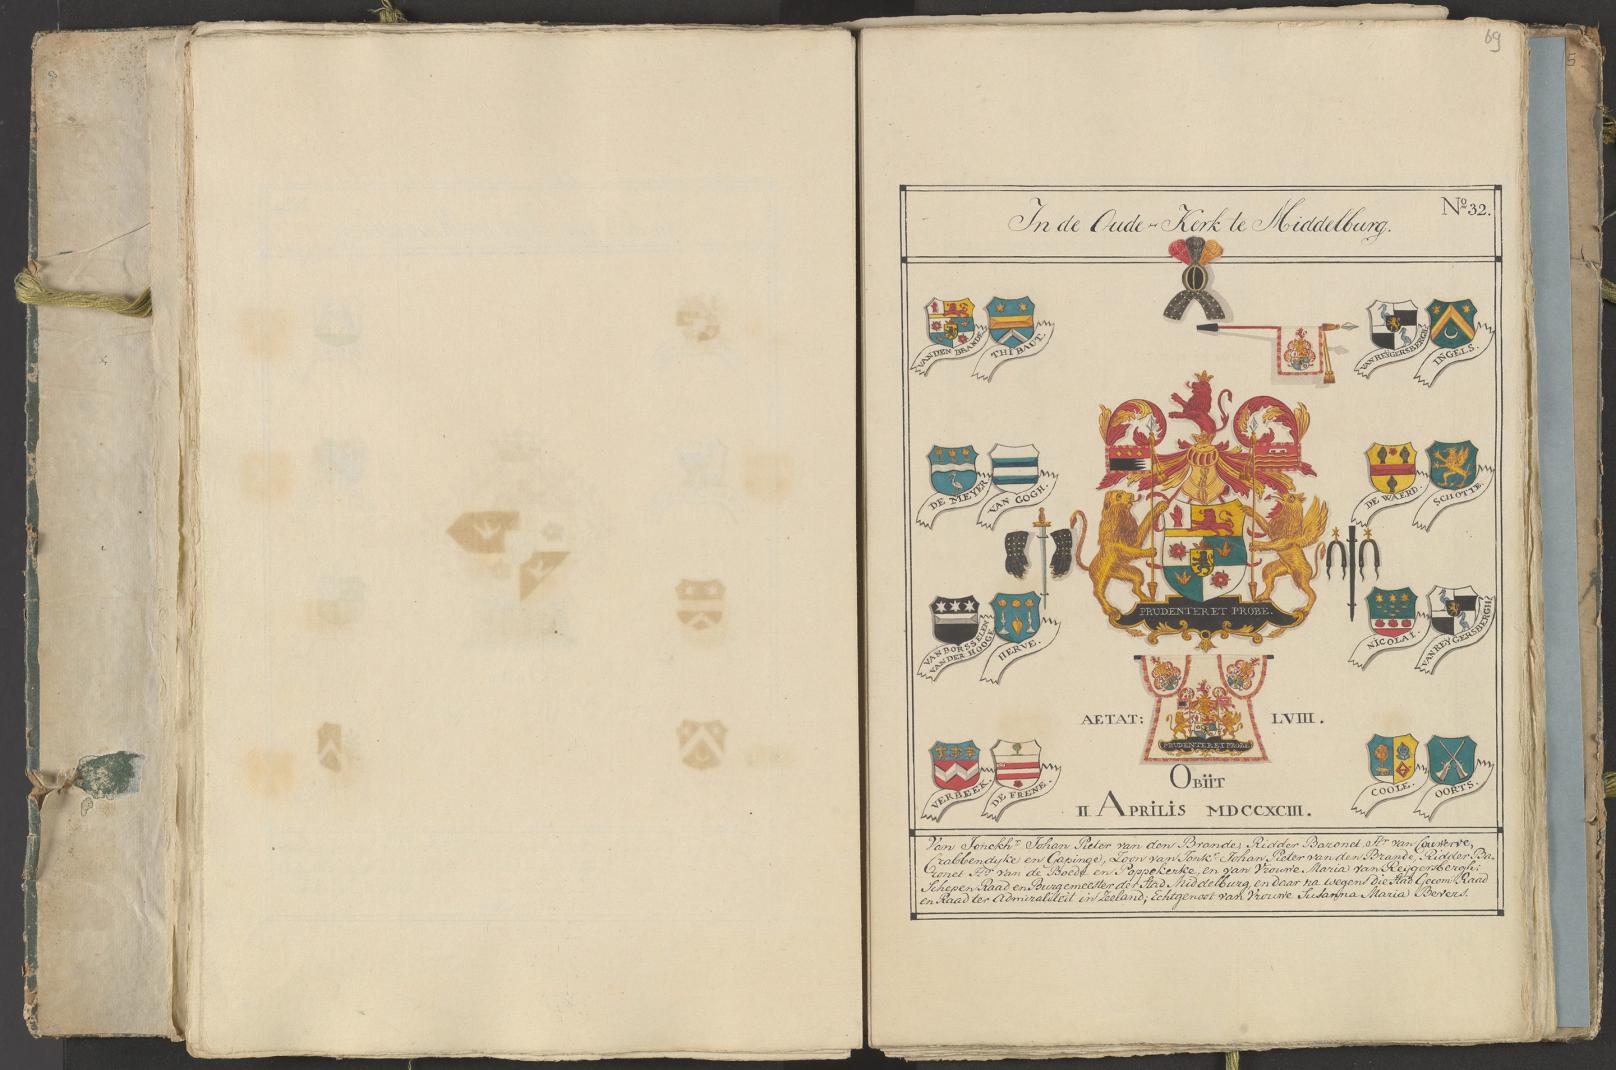 69
5
8
In de Oude-Kerk te Middelburg.
Nº 32.
VAN DEN BRANDE.
THIBAUT.
VAN REYGERSBERGH.
INGELS.
DE MEYER.
VAN GOGH.
DE WAERD.
SCHOTTE.
PRUDENTER ET PROBE.
VAN BORSSELEN
VAN DER HOOGE.
HERVE.
NICOLAI.
VAN REYGERSBERGH.
AETAT: LVIII.
PRUDENTER ET PROBE.
VERBEEK.
DE FRENE.
COOLE.
OORTS.
OBIIT
II APRILIS MDCCXCIII.
Van Jonckhr. Johan Pieter van den Brande, Ridder Baronet, Hr. van Couwerve,
Crabbendyke en Gapinge, Zoon van Jonkr. Johan Pieter van den Brande, Ridder Ba-
ronet Hr. van de Boede en Poppekerke, en van Vrouwe Maria van Reygersbergh:
Schepen Raad en Burgemeester der Stad Middelburg, en daar na wegens die Stad Gecom: Raad
en Raad ter Admiraliteit in Zeeland; Echtgenoot van Vrouwe Susanna Maria Bevers.